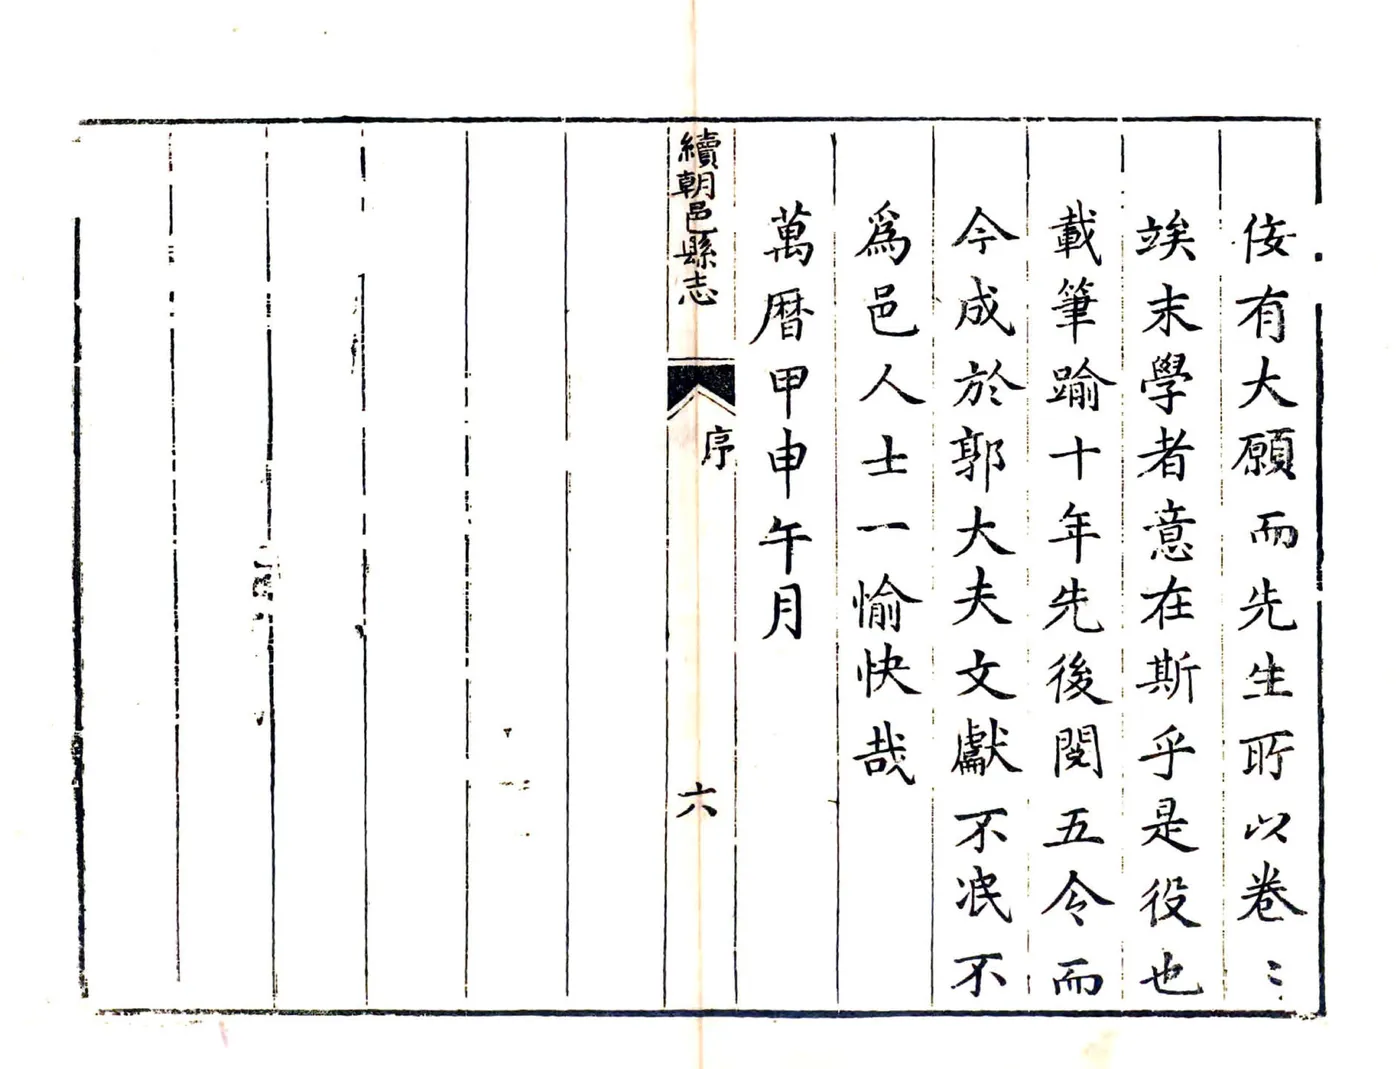 佞有大願而先生所以卷〻
竢末學者意在斯乎是役也
載筆踰十年先後閱五令而
今成於郭大夫文獻不泯不
為邑人士一愉快哉
萬曆甲申午月
續朝邑縣志
序
六